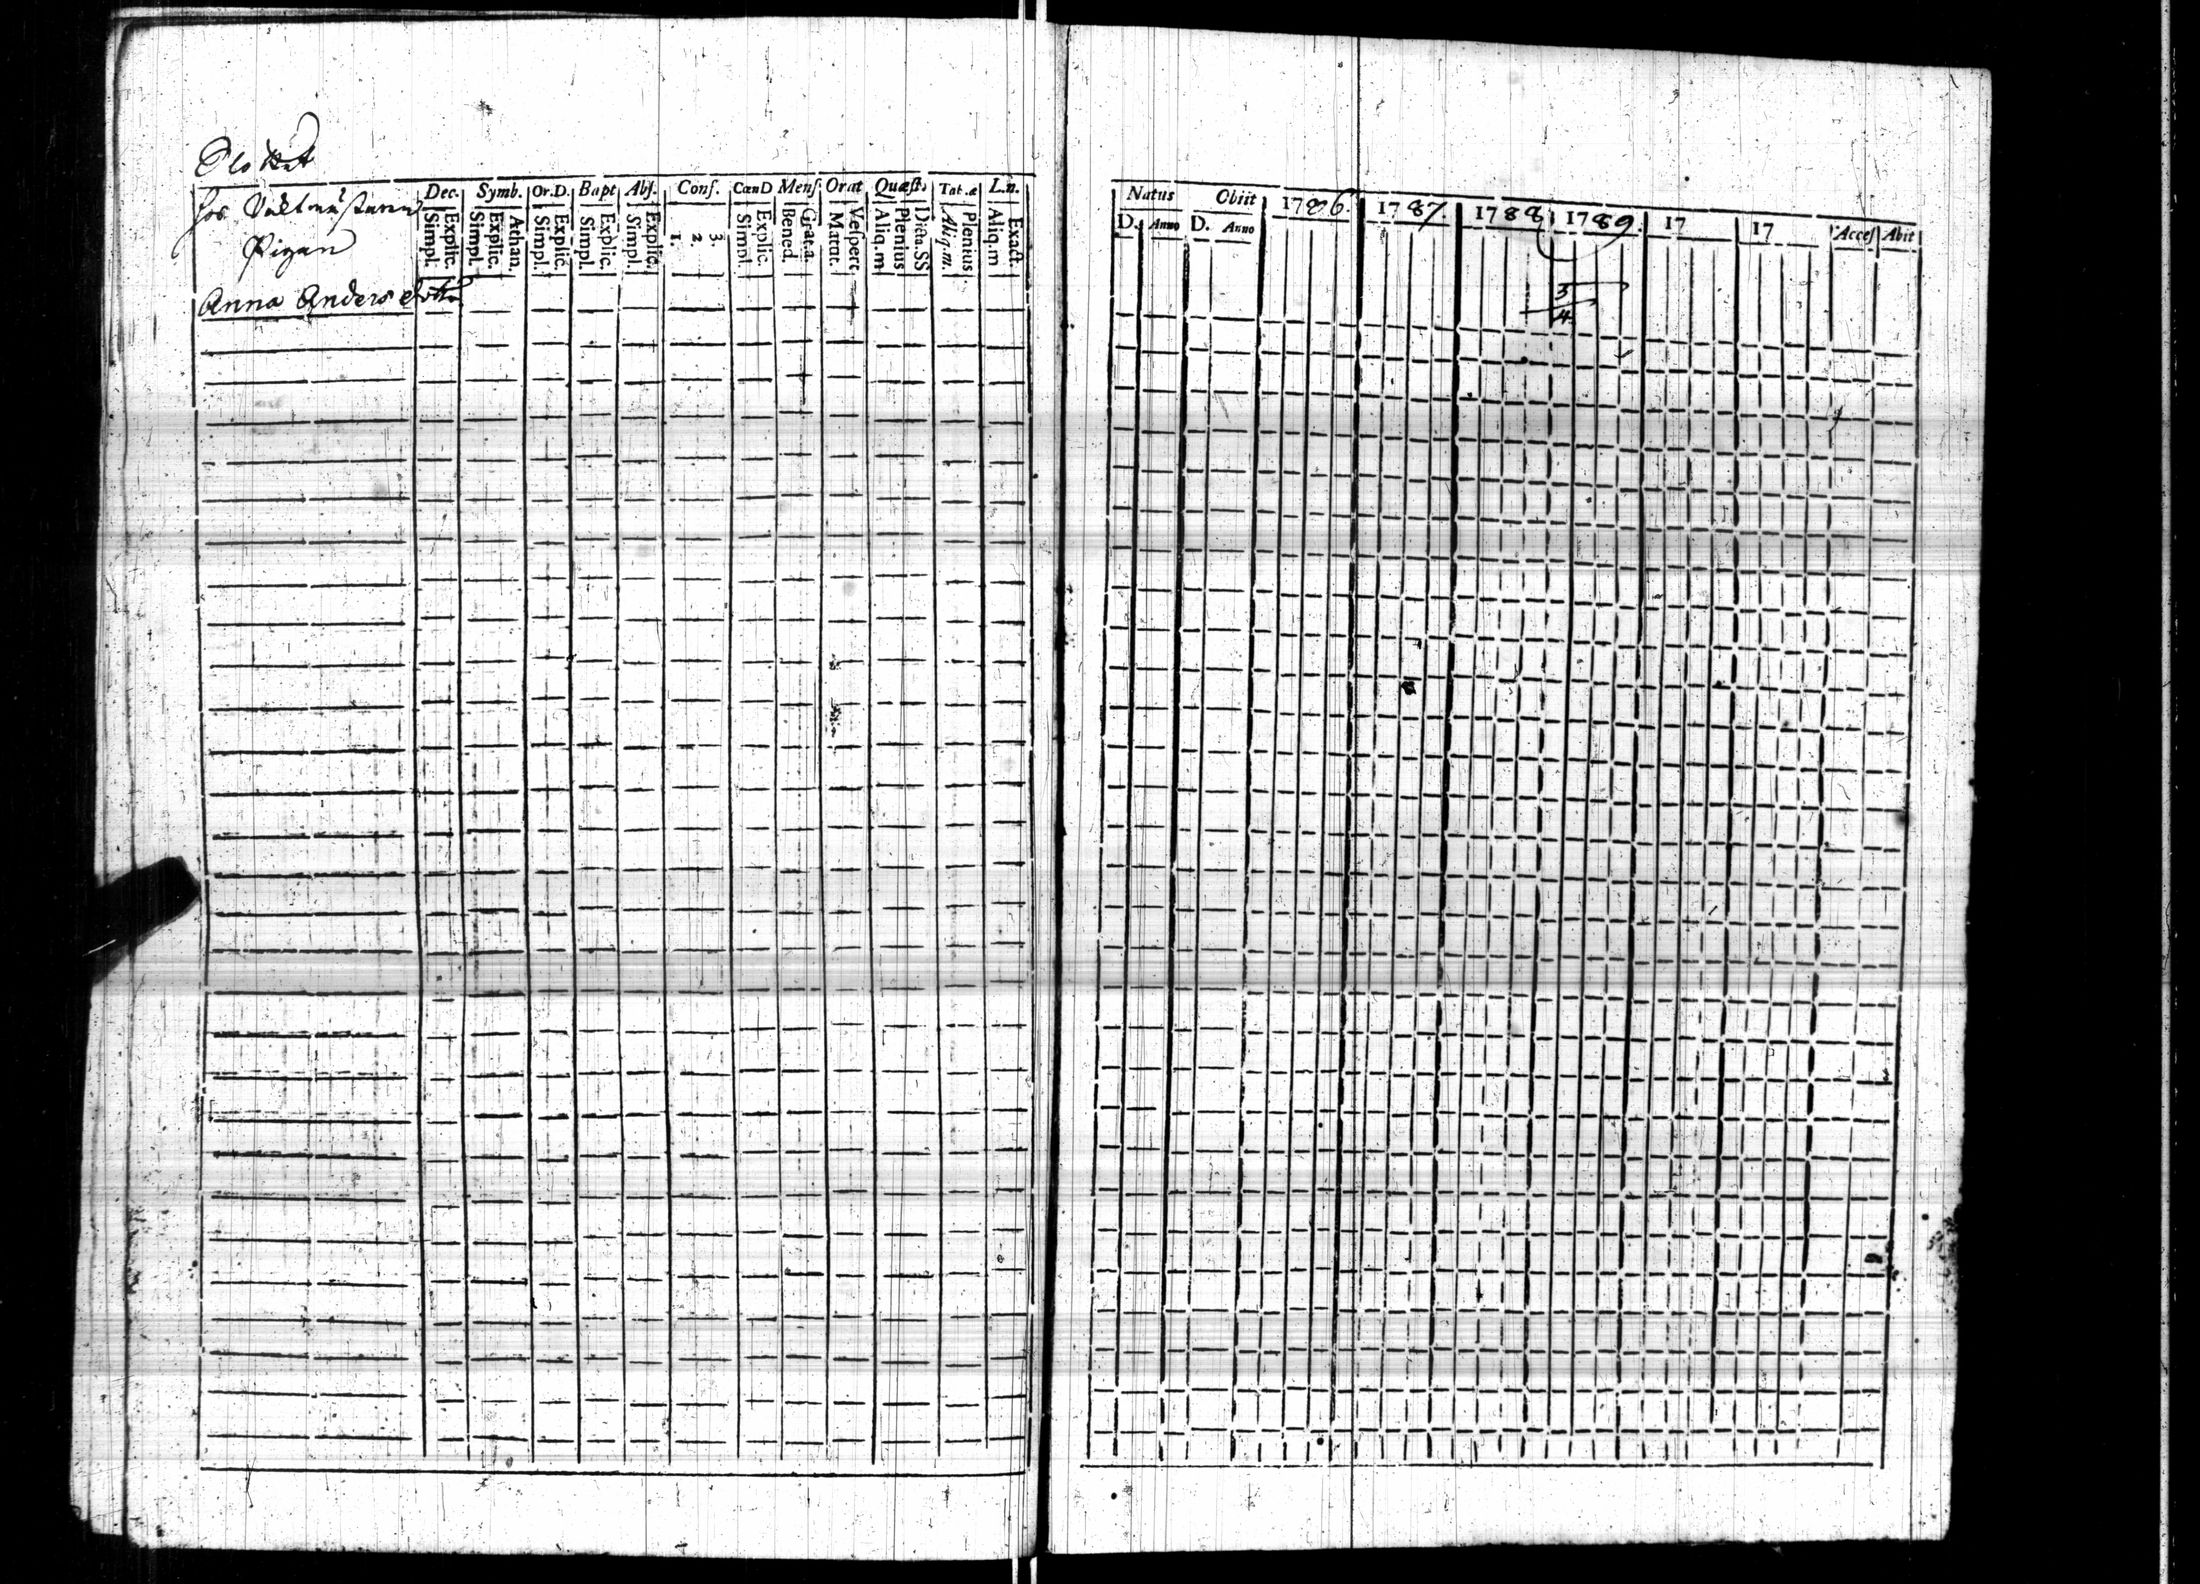 Slottet
hos Vaktmästaren
Pigan
Anna Anders dotter
Dec. Symb. Or.D. Bapt Abſ. Conf. CœnD Menſ. Orat Quæſt. Tab.æ L.n.
Simpl. Explic. Simpl. Explic. Athan. Simpl. Explic. Simpl. Explic. Simpl. Explic. 1. 2. 3. Simpl. Explic. Bened. Grat.a. Matut. Veſpert. Aliq.m Plenius Dicta.SS Aliq.m. Plenius. Aliq.m Exact.
Natus Obiit 1786. 1787. 1788 1789. 17 17 Acceſ Abit
D. Anno D. Anno
3
4